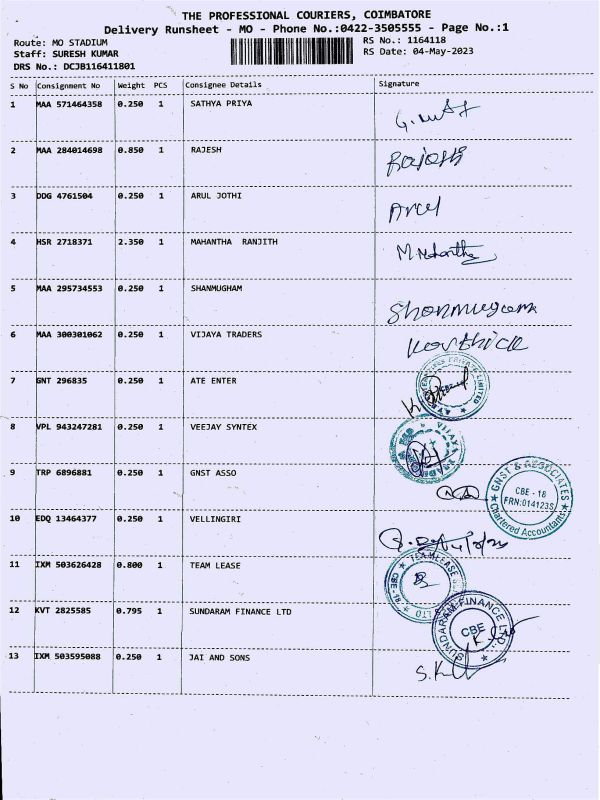 THE PROFESSIONAL COURIERS, COIMBATORE
Delivery Runsheet - MO - Phone No.:0422-3505555 - Page No.:1
Route: MO STADIUM RS No.: 1164118
Staff: SURESH KUMAR RS Date: 04-May-2023
DRS No.: DCJB116411801
S No Consignment No Weight PCS Consignee Details Signature
1 MAA 571464358 0.250 1 SATHYA PRIYA
2 MAA 284014698 0.850 1 RAJESH Rajesh
3 DDG 4761504 0.250 1 ARUL JOTHI Arul
4 HSR 2718371 2.350 1 MAHANTHA RANJITH
5 MAA 295734553 0.250 1 SHANMUGHAM Shanmugam
6 MAA 300301062 0.250 1 VIJAYA TRADERS Karthick
7 GNT 296835 0.250 1 ATE ENTER
8 VPL 943247281 0.250 1 VEEJAY SYNTEX
9 TRP 6896881 0.250 1 GNST ASSO
GNST & ASSOCIATES
CBE - 18
FRN:014123S
Chartered Accountants
10 EDQ 13464377 0.250 1 VELLINGIRI
11 IXM 503626428 0.800 1 TEAM LEASE
TEAMLEASE
12 KVT 2825585 0.795 1 SUNDARAM FINANCE LTD
SUNDARAM FINANCE LTD
CBE
13 IXM 503595088 0.250 1 JAI AND SONS